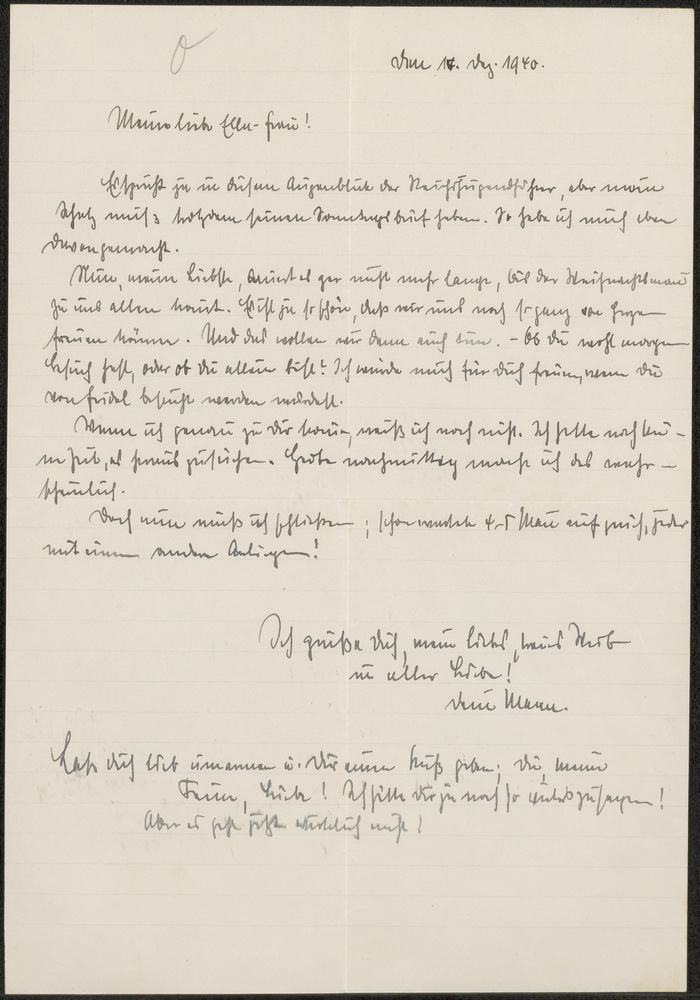 Den 14. Dez. 1940.
Meine liebe Ella-Frau!
Es spricht ja in diesem Augenblick der Reichsjugendführer, aber mein
Schatz muß trotzdem seinen Sonntagsbrief haben. So habe ich mich eben
davongemacht.
Nun, meine Liebste, dauert es gar nicht mehr lange, bis der Weihnachtsmann
zu uns allen kommt. Es ist ja so schön, daß wir uns noch so ganz von Herzen
freuen können. Und das wollen wir dann auch tun. – Ob Du wohl morgen
Besuch hast, oder ob Du allein bist? Ich würde mich für Dich freuen, wenn Du
von Friedel besucht werden würdest.
Wann ich genau zu Dir komme, weiß ich noch nicht. Ich hatte noch kei-
ne Zeit, es herauszusuchen. Heute nachmittag mache ich das wahr-
scheinlich.
Doch nun muß ich schließen; schon warten 4-5 Mann auf mich, jeder
mit einem anderen Anliegen!
Ich grüße Dich, mein liebes, Weib
in aller Liebe!
Dein Mann.
Laß Dich lieb umarmen u. Dir einen Kuß geben; Du, meine
Feine, Liebe! Ich hätte Dir ja noch so zu sagen!
Aber es geht jetzt wirklich nicht!